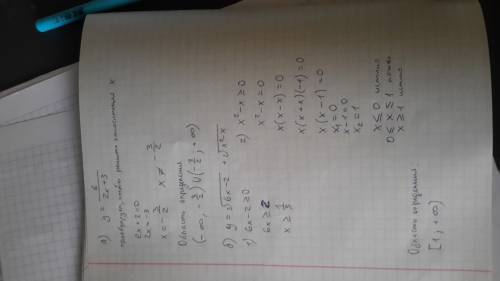 а) y = 6/(2x+3)
преобразуем, чтобы решить относительно x
2x+3=0
2x=-3
x = -3/2    x ≠ -3/2
Область определения
(-∞, -3/2) ∪ (-3/2; +∞)
б) y = √(6x-2) + √(x²-x)
1) 6x-2≥0
6x ≥ 2
x ≥ 1/3
2) x²-x ≥ 0
x²-x = 0
x(x-x) = 0
x(x+x)(-1) = 0
x(x-1) = 0
x₁=0
x-1=0
x₂=1
x ≤ 0 истина
0 ≤ x ≤ 1 ложь
x ≥ 1 истина
Область определения
[1; +∞)